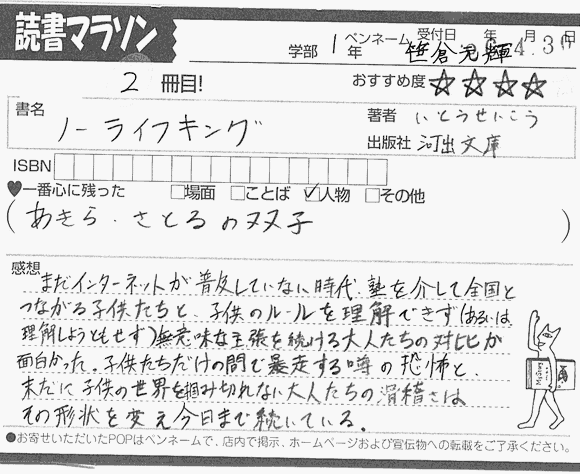 読書マラソン
学部 1年 ペンネーム 笹倉光輝 受付日 年4月3日
2冊目!
おすすめ度 ☆☆☆☆
書名
ノーライフキング
著者 いとうせいこう
出版社 河出文庫
ISBN
♥一番心に残った □場面 □ことば ☑人物 □その他
(あきら・さとるの双子)
感想
まだインターネットが普及していない時代、塾を介して全国と
つながる子供たちと、子供のルールを理解できず(あるいは、
理解しようともせず)無意味な主張を続ける大人たちの対比が
面白かった。子供たちだけの間で暴走する噂の恐怖と、
未だに子供の世界を掴み切れない大人たちの滑稽さは
その形状を変え今日まで続いている。
●お寄せいただいたPOPはペンネームで、店内で掲示、ホームページおよび宣伝物への転載をご了承ください。